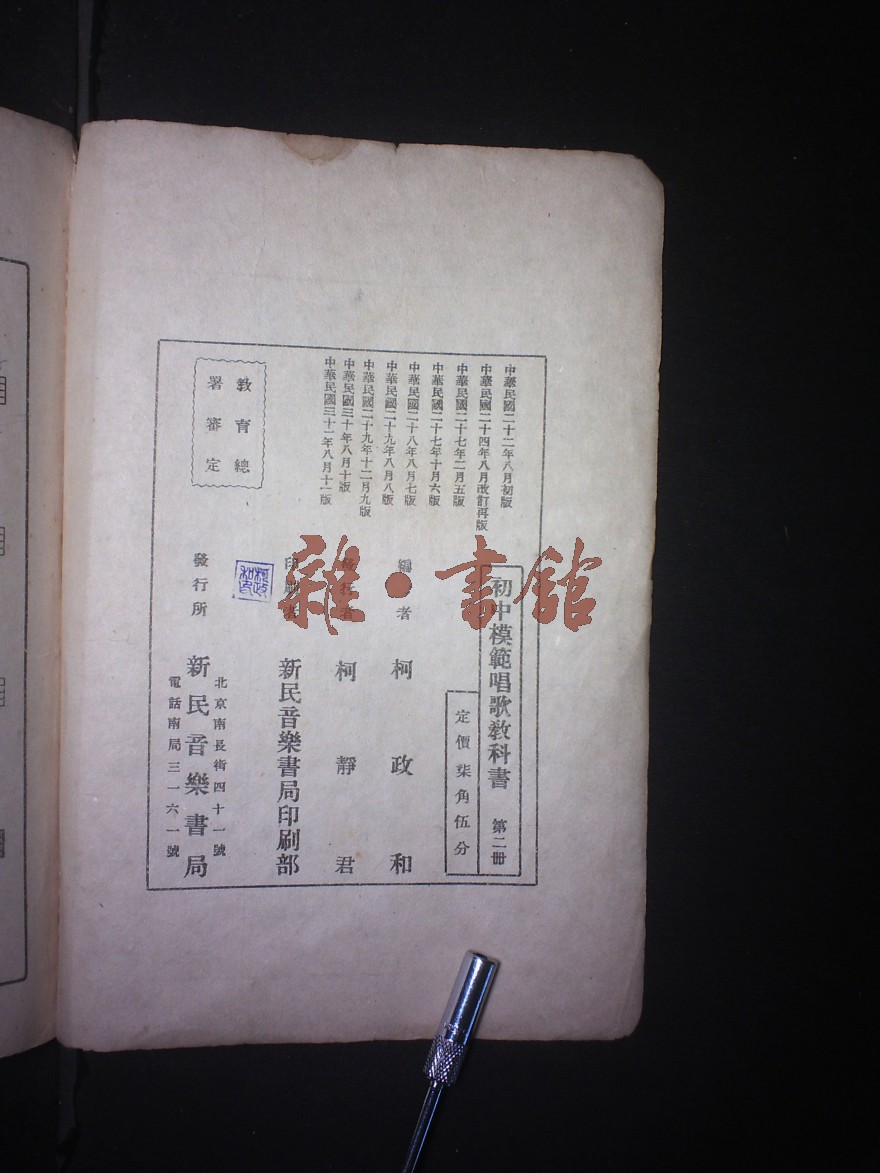 中華民國二十二年八月初版
中華民國二十四年八月改訂再版
中華民國二十七年二月五版
中華民國二十七年十月六版
中華民國二十八年八月七版
中華民國二十九年八月八版
中華民國二十九年十二月九版
中華民國三十年八月十版
中華民國三十一年八月十一版
教育總
署審定
初中模範唱歌教科書 第二冊
定價柒角伍分
編者 柯政和
發行者 柯靜君
印刷者 新民音樂書局印刷部
發行所 新民音樂書局
北京南長街四十一號
電話南局三一六一號
柯政
和印
雜·書館